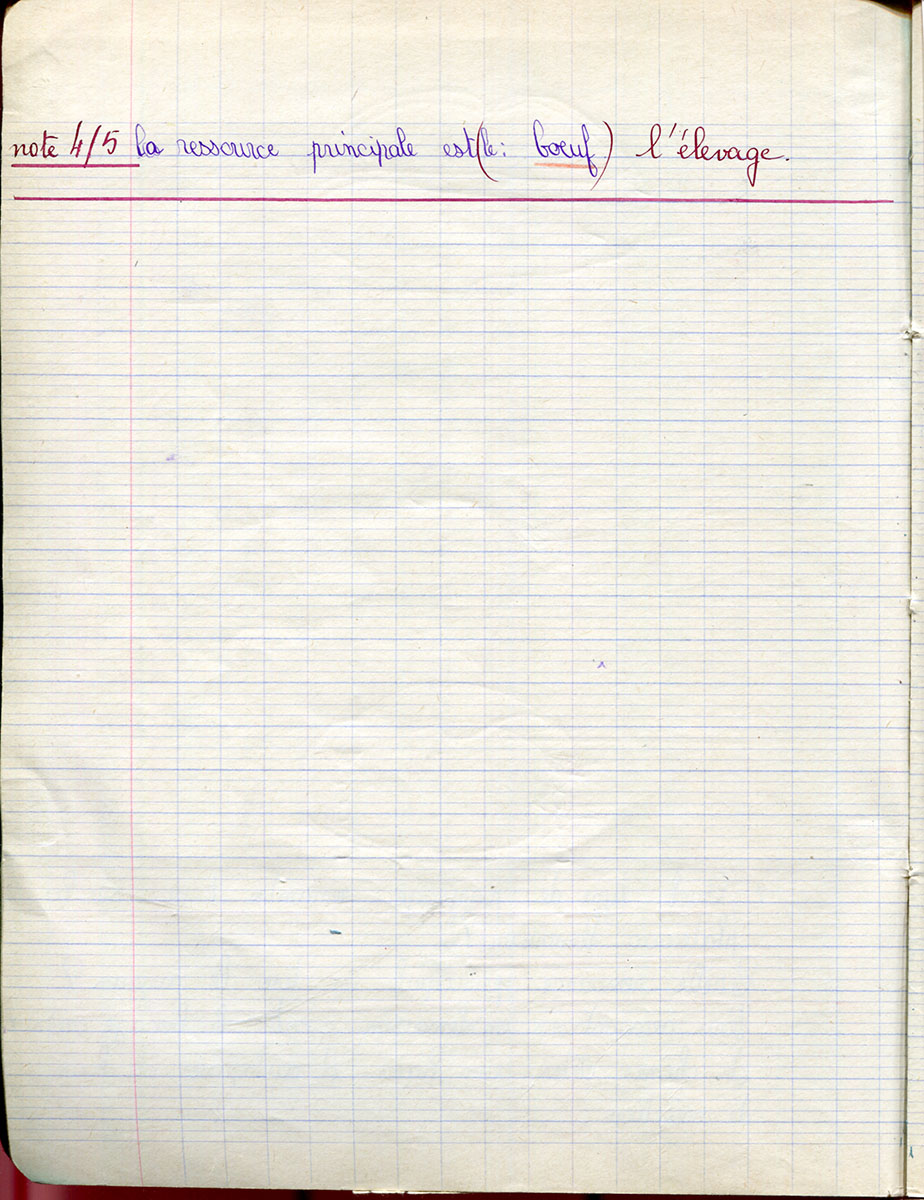 note 4/5 la ressource principale est (le : bœuf) l'élevage.